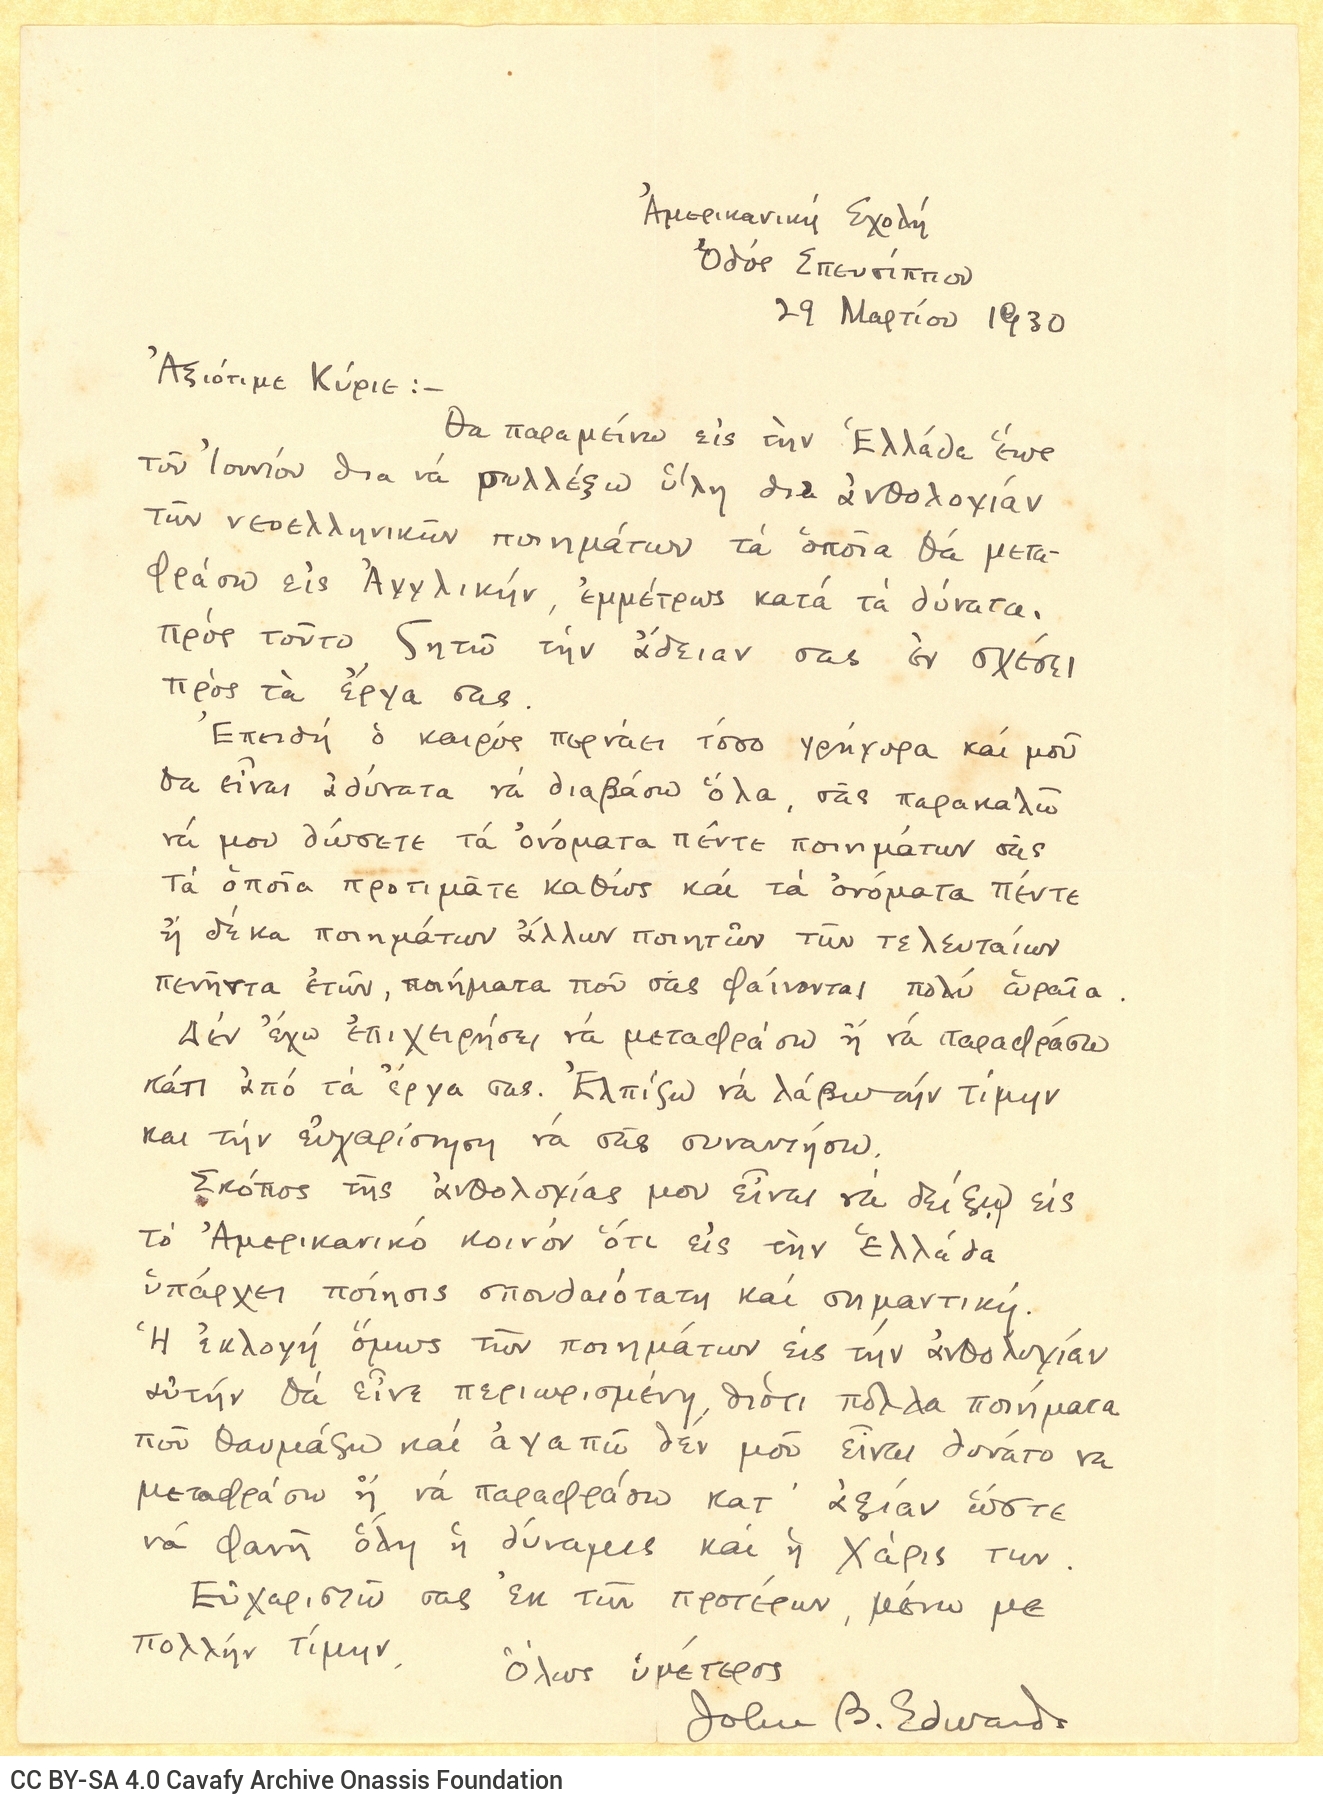 Ἀμερικανική Σχολή
Ὁδός Σπευσίππου
29 Μαρτίου 1930
Ἀξιότιμε Κύριε :–
Θα παραμείνω εἰς τὴν Ἑλλάδα ἕως
τοῦ Ἰουνίου δια νά συλλέξω ὕλη δια ἀνθολογίαν
τῶν νεοελληνικῶν ποιημάτων τά ὁποῖα θά μετα-
φράσω εἰς Ἀγγλικήν, ἐμμέτρως κατά τά δύνατα.
Πρός τοῦτο ζητῶ τήν ἄδειαν σας ἐν σχέσει
πρὸς τὰ ἔργα σας.
Ἐπειδή ὁ καιρός περνάει τόσο γρήγορα καί μοῦ
θα εἶναι ἀδύνατα νά διαβάσω ὅλα, σᾶς παρακαλῶ
νά μου δώσετε τά ὀνόματα πέντε ποιημάτων σᾶς
τά ὁποῖα προτιμᾶτε καθώς καί τά ὀνόματα πέντε
ἤ δέκα ποιημάτων ἄλλων ποιητῶν τῶν τελευταίων
πενῆντα ἐτῶν, ποιήματα ποῦ σᾶς φαίνονται πολύ ὡραῖα.
Δέν ἔχω ἐπιχειρήσει νά μεταφράσω ἤ νά παραφράσω
κάτι ἀπό τά ἔργα σας. Ἐλπίζω νά λάβω τήν τίμην
και τήν εὐχαρίστηση νά σᾶς συναντήσω.
Σκόπος τῆς ἀνθολογίας μου εἶναι νά δείξω εἰς
τό Ἀμερικανικό κοινόν ὅτι εἰς τὴν Ἑλλάδα
ὑπάρχει ποίησις σπουδαιότατη καί σημαντική.
Ἡ ἐκλογή ὅμως τῶν ποιημάτων εἰς τήν ἀνθολογίαν
αὐτήν θά εἶνε περιωρισμένη, διότι πόλλα ποιήματα
ποῦ θαυμάζω καί ἀγαπῶ δέν μοῦ εἶναι δυνάτο να
μεταφράσω ἤ νά παραφράσω κατ' ἀξίαν ὥστε
νά φανῆ ὅλη ἡ δύναμις καί ἡ Χάρις των.
Εὐχαριστῶ σας ἐκ τῶν προτέρων, μένω με
πολλήν τίμην,
Ὅλως ὑμέτερος
John B. Edwards
CC BY-SA 4.0 Cavafy Archive Onassis Foundation